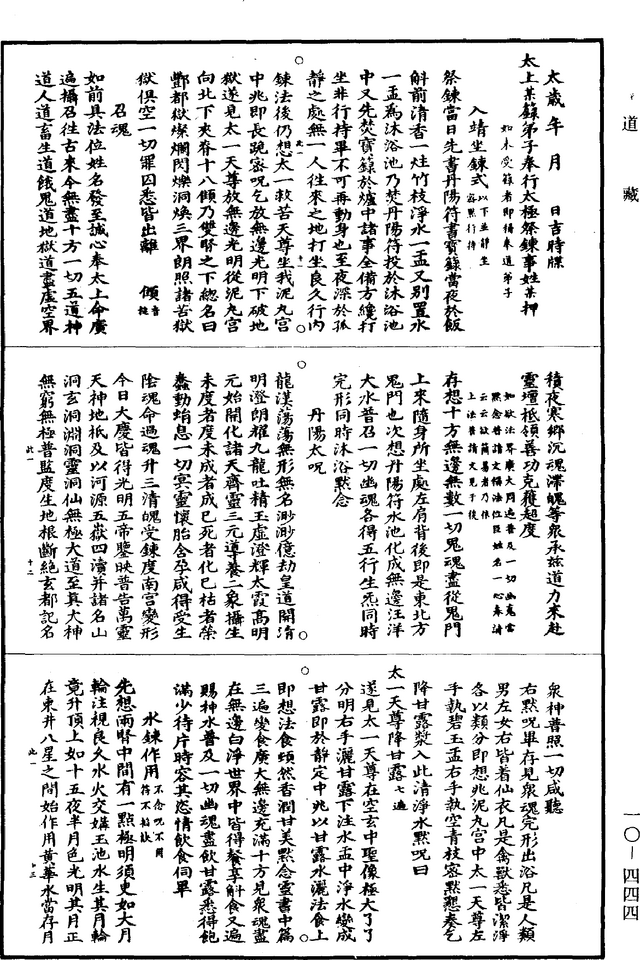 道藏
太歲年月　日吉時牒
太上某籙弟子奉行太極祭鍊事姓某押
如未受籙者即稱奉道弟子
入靖坐鍊式以下並靜坐密默行持
祭鍊當日先書丹陽符書寶籙當夜於飯
斛前清香一炷竹枝淨水一盂又別置水
一盂為沐浴池乃焚丹陽符投於沐浴池
中又先焚寶籙於爐中諸事全備方纔打
坐非行持畢不可再動身也至夜深於孤
靜之處無一人往來之地打坐良久行內
鍊法後仍想太一救苦天尊坐我泥丸宮
中兆即長跪密呪乞放無邊光明下破地
獄遂見太一天尊放無邊光明從泥丸宮
向北下夾脊十八傾乃雙腎之下總名曰
酆都獄燦爛閃爍洞煥三界朗照諸苦獄
獄俱空一切罪囚悉皆出離
召魂
如前具法位姓名發至誠心奉太上命廣
遍攝召往古來今無盡十方一切五道神
道人道畜生道餓鬼道地獄道盡虛空界
積夜寒鄉沉魂滯魄等衆承玆道力來赴
靈壇祗領善功克獲超度
如欲法界廣大周遍普及一切幽爽當
默念普請文稱法位臣姓名一心奉請
云云欲簡易者乃作
上法普請文見于後
存想十方無邊無數一切鬼魂盡從鬼門
上來隨身所坐處左肩背後即是東北方
鬼門也次想丹陽符水池化成無邊汪洋
大水普召一切幽魂各得五行生炁同時
完形同時沐浴默念
丹陽太呪
龍漢蕩蕩無形無名渺渺億劫皇道開清
明澄朗耀九龍吐精玉虛澄輝太霞高明
元始開化諸天齊靈三元導養二象攝生
未度者度未成者成已死者化已枯者榮
蠢動蛸息一切冥靈懷胎含孕咸得受生
陰魂命過魂升三清魄受鍊度南宮變形
今日大慶皆得光明五帝鑒映普告萬靈
天神地祇及以河源五嶽四瀆并諸名山
洞玄洞淵洞靈洞仙無極大道至真大神
無窮無極普監度生地根斷絕玄都記名
衆神普照一切咸聽
右默呪畢存見衆魂完形出浴凡是人類
男左女右皆着仙衣凡是禽獸悉皆潔淨
各以類分即想兆泥丸宮中太一天尊左
手執碧玉盂右手執空青枝密默懇奏乞
降甘露漿入此清淨水默呪曰
太一天尊降甘露七遍
遂見太一天尊在空玄中聖像極大了了
分明右手灑甘露下注水盂中淨水變成
甘露即於靜定中兆以甘露水灑法食上
即想法食頓然香潤甘美默念靈書中篇
三遍變食廣大無邊充滿十方見衆魂盡
在無邊白淨世界中皆得餐享斛食又遍
賜神水普及一切幽魂盡飲甘露悉得飽
滿少待片時容其恣情飲食伺畢
水鍊作用不念呪不用符不捻訣
先想兩腎中間有一點極明須臾如大月
輪注視良久水火交媾玉池水生其月輪
竟升頂上如十五夜半月色光明其月正
在東井八星之間始作用黃華水當存月
一〇—四四四